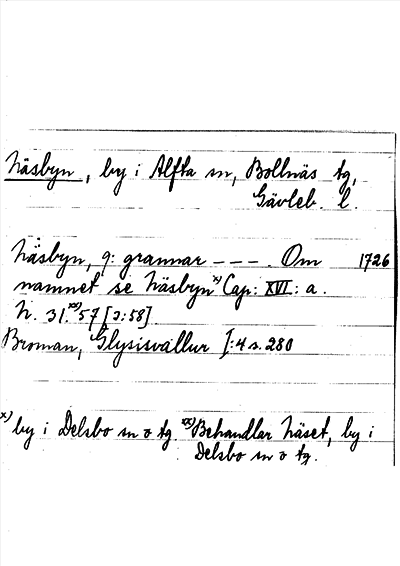 Näsbyn, by i Alfta sn, Bollnäs tg,
Gävleb. l.
Näsbyn, 9: grannar ---. Om 1726
namnet se Näsbyn x) Cap: XVI: a.
N. 31. xx) 57 [ɔ: 58]
Broman, Glysisvallur I:4 s. 280
x) by i Delsbo sn o tg. xx) Behandlar Näset, by i
Delsbo sn o tg.